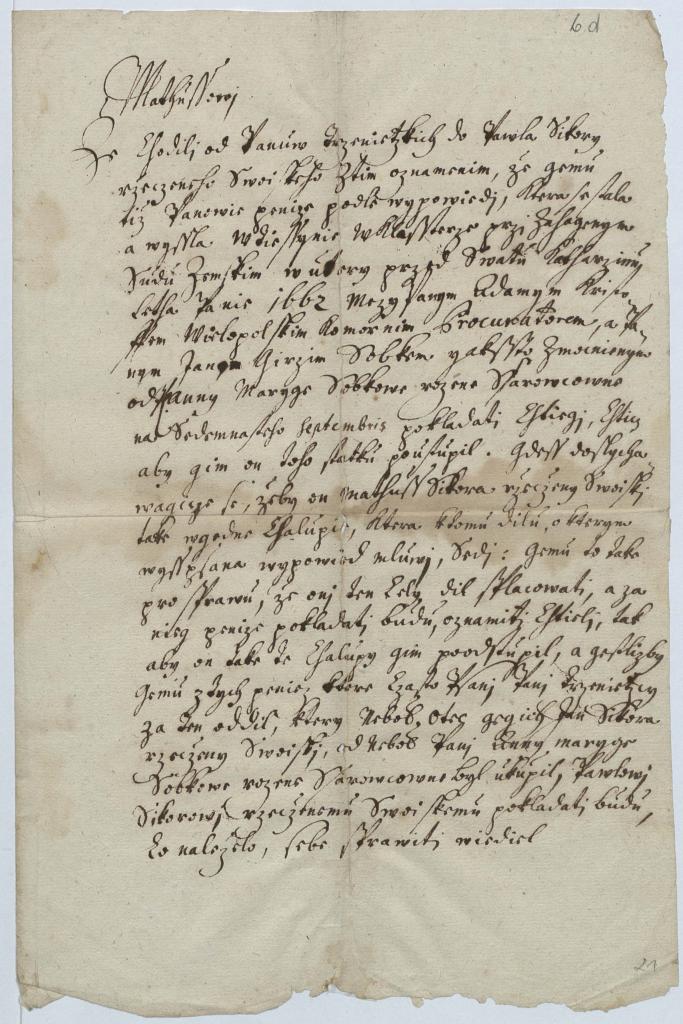 6 d
Mathussowj
Ze Chodilj od Panuw Trzenietzkich do Pawla Sikory
rzeczeneho Swoiskeho Ztim oznamenim, ze gemu
tiz Panowie penize podle wypowiedj, ktera se stala
a wyssla w Tiessynie w Klassterze przi Zahagenym
Sudu Zemskim w utery przed Swatu Katharzinu
Letha Panie 1662 Mezy Panym Adamym Krisso
ffem Wielopolskim Komornim Procuratorem, a Pa
nym Janym Girzim Sobkem yakssto Zmocnienym
od Panny Maryge Sobkowe rozene Skarowcowne
na Sedemnasteho Septembris pokladati Chtiegj, Chticz
aby gim on toho statku poustupil. Gdess doslycha
wagicze se, zeby on Mathuss Sikora rzeczeny Swoiskj
take w gedne Chalupie, ktera k tomu dilu, o kterym
wysspsana wypowied mluwj, Sedj: Gemu to take
pro sprawu, ze onj ten Cely dil splacowati, a za
nieg penize pokladatj budu, oznamitj Chtielj, tak
aby on take te Chalupy gim poodstupil, a gestlizby
gemu z tych peniez, ktere Czasto Psanj Panj Trzenietzcy
za ten oddil, ktery Nebos, otec gegich Jan Sikora
rzeczeny Swoiskj, od Nebos Panj Anny Maryge
Sobkowe rozene Skarowcowne byl ukupil, Pawlowj
Sikorowj rzeczenemu Swoiskemu pokladatj budu,
Co nalezelo, sebe sprawiti wiediel
21